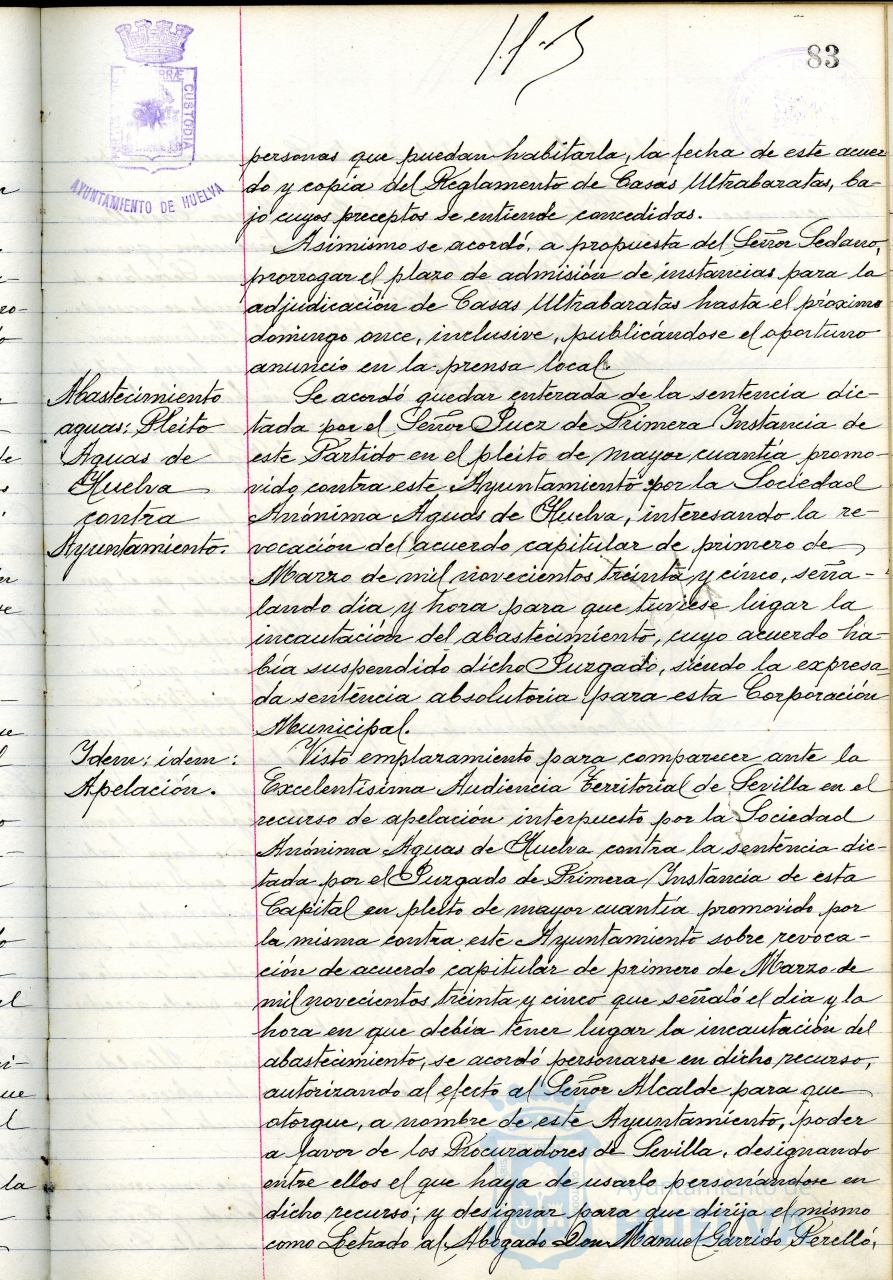 83
CUSTODIA
AYUNTAMIENTO DE HUELVA
personas que puedan habitarla, la fecha de este acuer
do y copia del Reglamento de Casas Ultrabaratas, ba-
jo cuyos preceptos se entiende concedidas.
Asimismo se acordó, a propuesta del Señor Sedano,
prorrogar el plazo de admisión de instancias para la
adjudicación de Casas Ultrabaratas hasta el próximo
domingo once, inclusive, publicándose el oportuno
anuncio en la prensa local.
Abastecimiento
aguas: Pleito
Aguas de
Huelva
contra
Ayuntamiento.
Se acordó quedar enterada de la sentencia dic-
tada por el Señor Juez de Primera Instancia de
este Partido en el pleito de mayor cuantía promo-
vido contra este Ayuntamiento por la Sociedad
Anónima Aguas de Huelva, interesando la re-
vocación del acuerdo capitular de primero de
Marzo de mil novecientos treinta y cinco, seña-
lando día y hora para que tuviese lugar la
incautación del abastecimiento, cuyo acuerdo ha-
bía suspendido dicho Juzgado, siendo la expresa-
da sentencia absolutoria para esta Corporación
Municipal.
Idem: idem:
Apelación.
Visto emplazamiento para comparecer ante la
Excelentísima Audiencia Territorial de Sevilla en el
recurso de apelación interpuesto por la Sociedad
Anónima Aguas de Huelva contra la sentencia dic-
tada por el Juzgado de Primera Instancia de esta
Capital en pleito de mayor cuantía promovido por
la misma contra este Ayuntamiento sobre revoca-
ción de acuerdo capitular de primero de Marzo de
mil novecientos treinta y cinco que señaló el dia y la
hora en que debía tener lugar la incautación del
abastecimiento, se acordó personarse en dicho recurso,
autorizando al efecto al Señor Alcalde para que
otorgue, a nombre de este Ayuntamiento, poder
a favor de los Procuradores de Sevilla, designando
entre ellos el que haya de usarlo personándose en
dicho recurso; y designar para que dirija el mismo
como Letrado al Abogado Don Manuel Garrido Perelló,
Ayuntamiento de
HUELVA